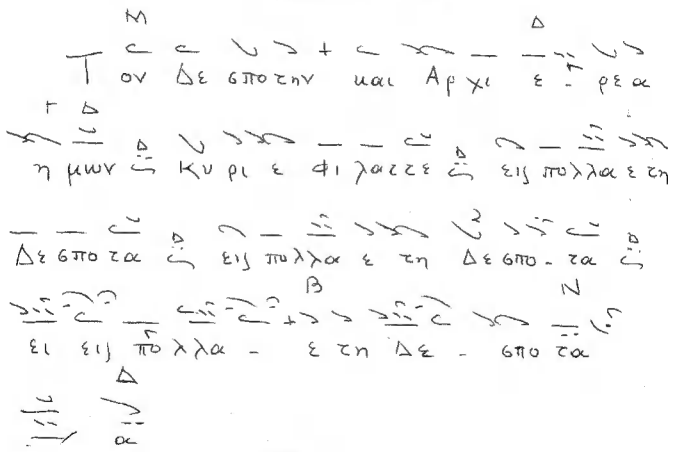 Μ Δ
Τον Δε σποτην και Αρχι ε - ρεα
Γ Δ
η μων Κυ ρι ε φι λαττε εις πολλα ε τη
Δε σπο τα εις πολλα ε τη Δε σπο - τα
Β Ν
ει εις πο λλα - ε τη Δε - σπο τα
Δ
α